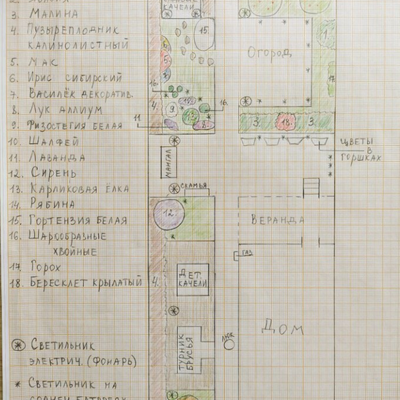 3. Малина
4. Пузыреплодник
калинолистный
5. Мак
6. Ирис сибирский
7. Василёк декоратив.
8. Лук аллиум
9. Физостегия белая
10. Шалфей
11. Лаванда
12. Сирень
13. Карликовая ёлка
14. Рябина
15. Гортензия белая
16. Шарообразные
хвойные
17. Горох
18. Бересклет крылатый
Светильник
электрич. (фонарь)
Светильник на
качели
15
Огород
1.
16.
4.
9
16.
11.
3.
18.
3.
Мангал
Цветы
в
горшках
скамья
12.
Веранда
газ
4.
Дет.
качели
Турник
брусья
люк
Дом